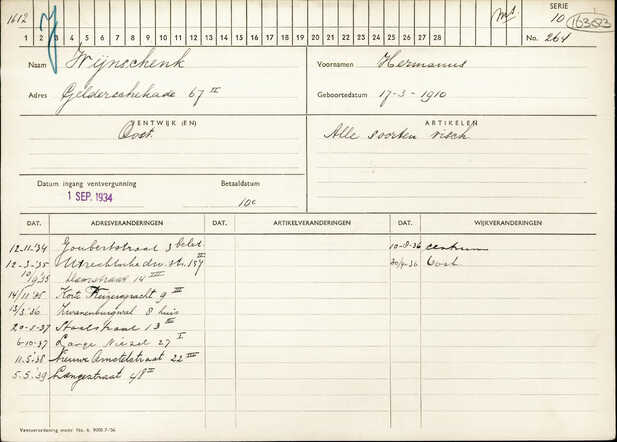 1612 J md SERIE
10 16383
1 2 3 4 5 6 7 8 9 10 11 12 13 14 15 16 17 18 19 20 21 22 23 24 25 26 27 28 No. 264
Naam Wijnschenk Voornamen Hermanus
Adres Gelderschekade 67 II Geboortedatum 17-3-1910
VENTWIJK (EN) ARTIKELEN
Oost. Alle soorten visch
Datum ingang ventvergunning Betaaldatum
1 SEP. 1934 10e
DAT. ADRESVERANDERINGEN DAT. ARTIKELVERANDERINGEN DAT. WIJKVERANDERINGEN
12-11-'34 Joubertstraat 3 belet. 10-8-36 centrum
12-3-'35 Utrechtschedw.str. 157 III 30/9-36 Oost
10/9'35 Damstraat 14 III
14/11'35 Korte Keizersgracht 9 III
13/3'36 Zwanenburgwal 8 huis
20-1-37 Staalstraat 13 III
6-10-37 Lange Niezel 27 I
11.5.'38 Nieuwe Amstelstraat 22 III
5.5.'39 Langestraat 48 II
Ventverordening model No. 6. 9000.7-'36